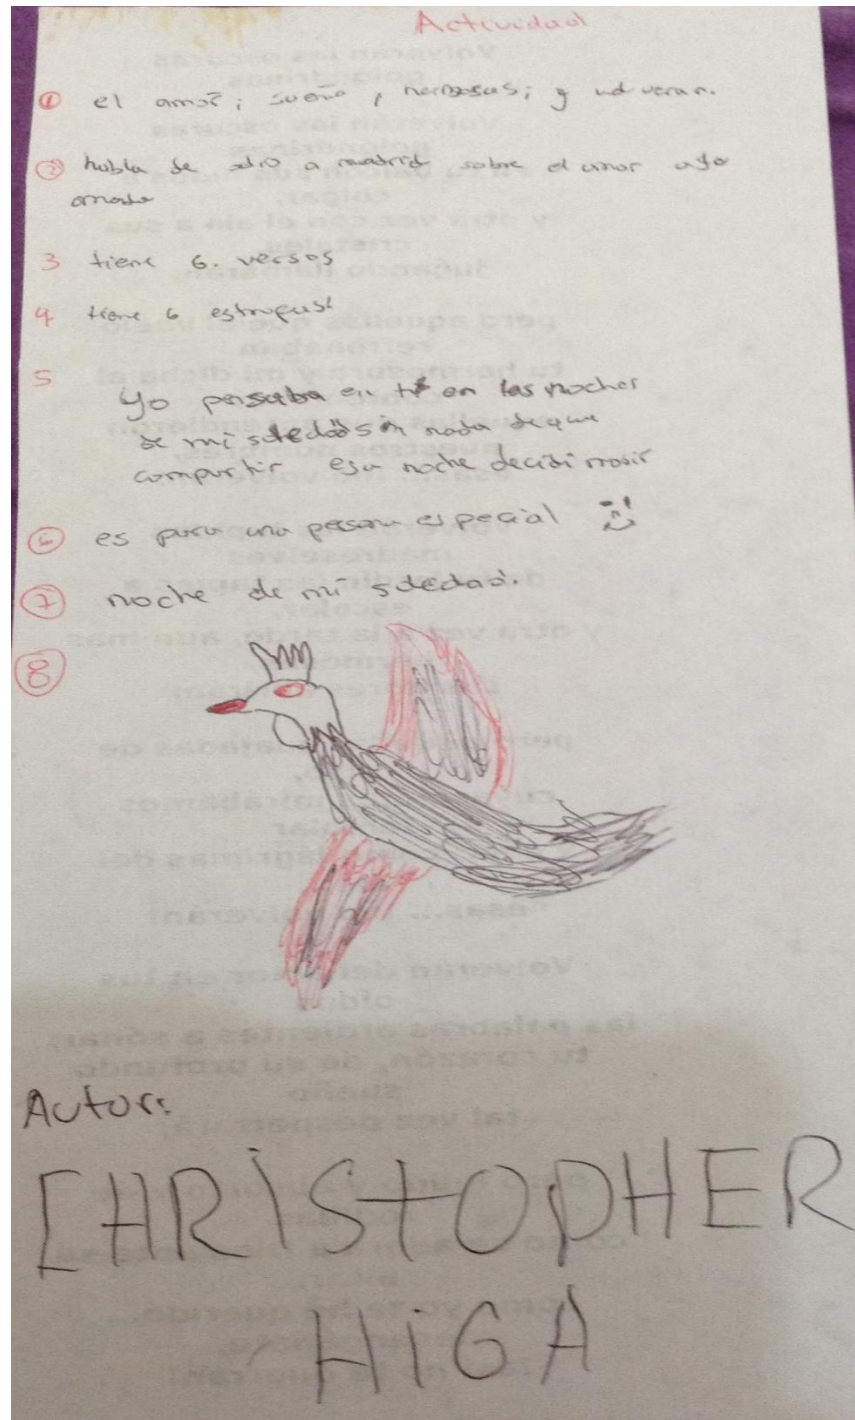 Actividad
① el amor; sueño, hermosas; y volveran.
② habla de a madrid sobre el amor
amado
3 tiene 6. versos
4 tiene 6 estrofas
5 Yo pensaba en ti en las noches
de mi soledad sin nada de que
compartir esa noche decidi morir
⑥ es para una persona especial
⑦ noche de mi soledad.
⑧
Autor:
CHRiStOPHER
HiGA